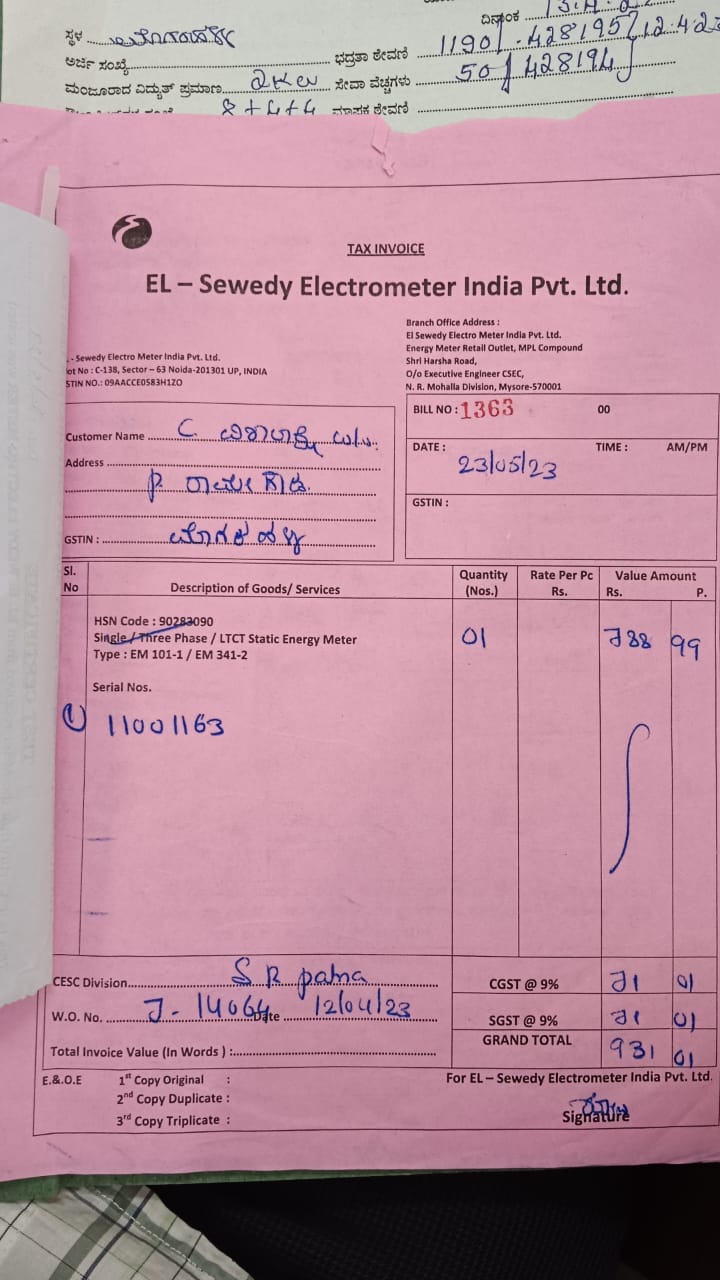 ದಿನಾಂಕ
ಸ್ಥಳ
ಅರ್ಜಿ ಸಂಖ್ಯೆ ಭದ್ರತಾ ಠೇವಣಿ 1190/- 428195/12.4.23
ಮಂಜೂರಾದ ವಿದ್ಯುತ್ ಪ್ರಮಾಣ ಸೇವಾ ವೆಚ್ಚಗಳು 50/ 428194
8+4+4 ಮಾಪಕ ಠೇವಣಿ
TAX INVOICE
EL – Sewedy Electrometer India Pvt. Ltd.
Branch Office Address :
El Sewedy Electro Meter India Pvt. Ltd.
Energy Meter Retail Outlet, MPL Compound
Shri Harsha Road,
O/o Executive Engineer CSEC,
N. R. Mohalla Division, Mysore-570001
. - Sewedy Electro Meter India Pvt. Ltd.
lot No : C-138, Sector – 63 Noida-201301 UP, INDIA
STIN NO.: 09AACCE0583H1ZO
BILL NO : 1363 00
DATE : 23/05/23 TIME : AM/PM
GSTIN :
Customer Name C.
Address
P.
GSTIN :
Sl. No Description of Goods/ Services Quantity (Nos.) Rate Per Pc Rs. Value Amount Rs. P.
HSN Code : 90283090
Single / Three Phase / LTCT Static Energy Meter 01 788 99
Type : EM 101-1 / EM 341-2
Serial Nos.
① 11001163
CESC Division S R patna CGST @ 9% 71 01
W.O. No. J- 14064 Date 12/04/23 SGST @ 9% 71 01
Total Invoice Value (In Words ) : GRAND TOTAL 931 01
E.&.O.E 1st Copy Original : For EL – Sewedy Electrometer India Pvt. Ltd.
2nd Copy Duplicate :
3rd Copy Triplicate : Signature